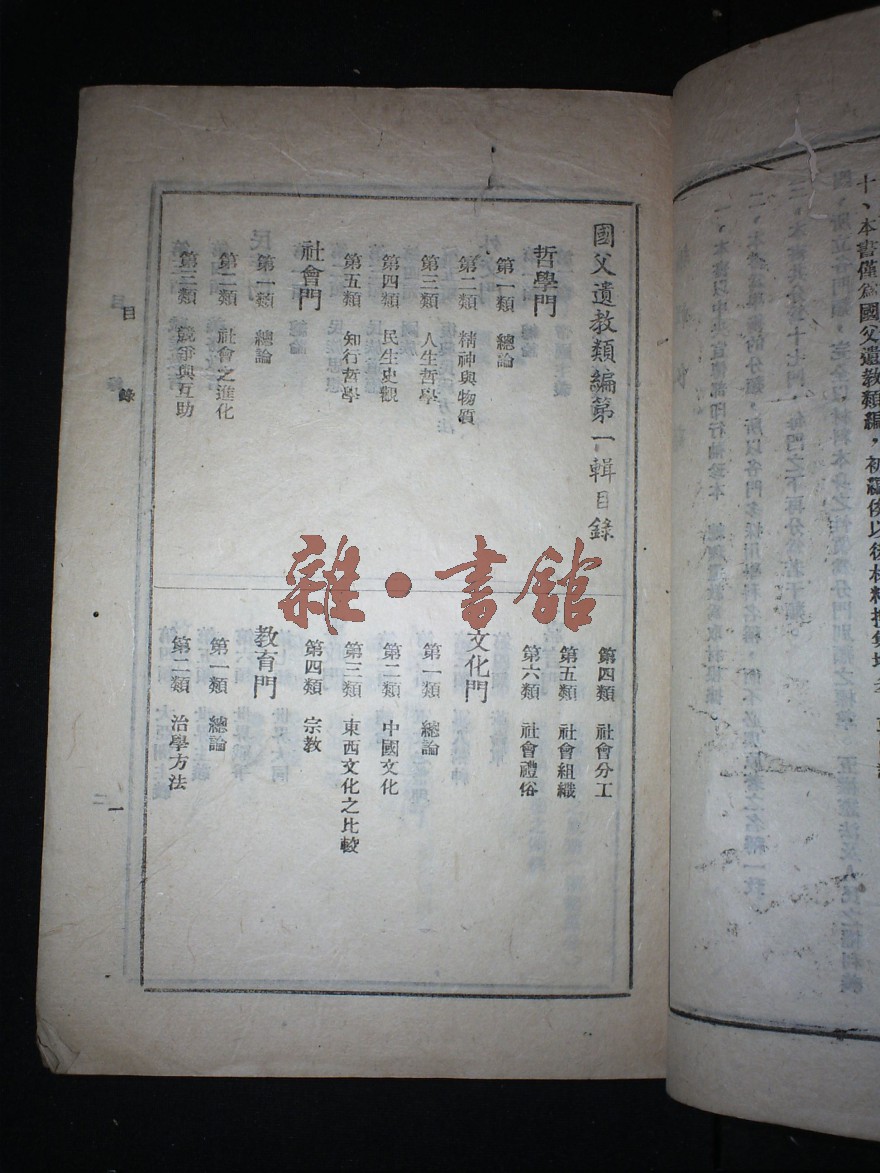 十、本書僅爲國父遺教類編，初
國父遺教類編第一輯目錄
哲學門
第一類 總論
第二類 精神與物質
第三類 人生哲學
第四類 民生史觀
第五類 知行哲學
社會門
第一類 總論
第二類 社會之進化
第三類 競爭與互助
第四類 社會分工
第五類 社會組織
第六類 社會禮俗
文化門
第一類 總論
第二類 中國文化
第三類 東西文化之比較
第四類 宗教
教育門
第一類 總論
第二類 治學方法
目錄
一
雜·書館